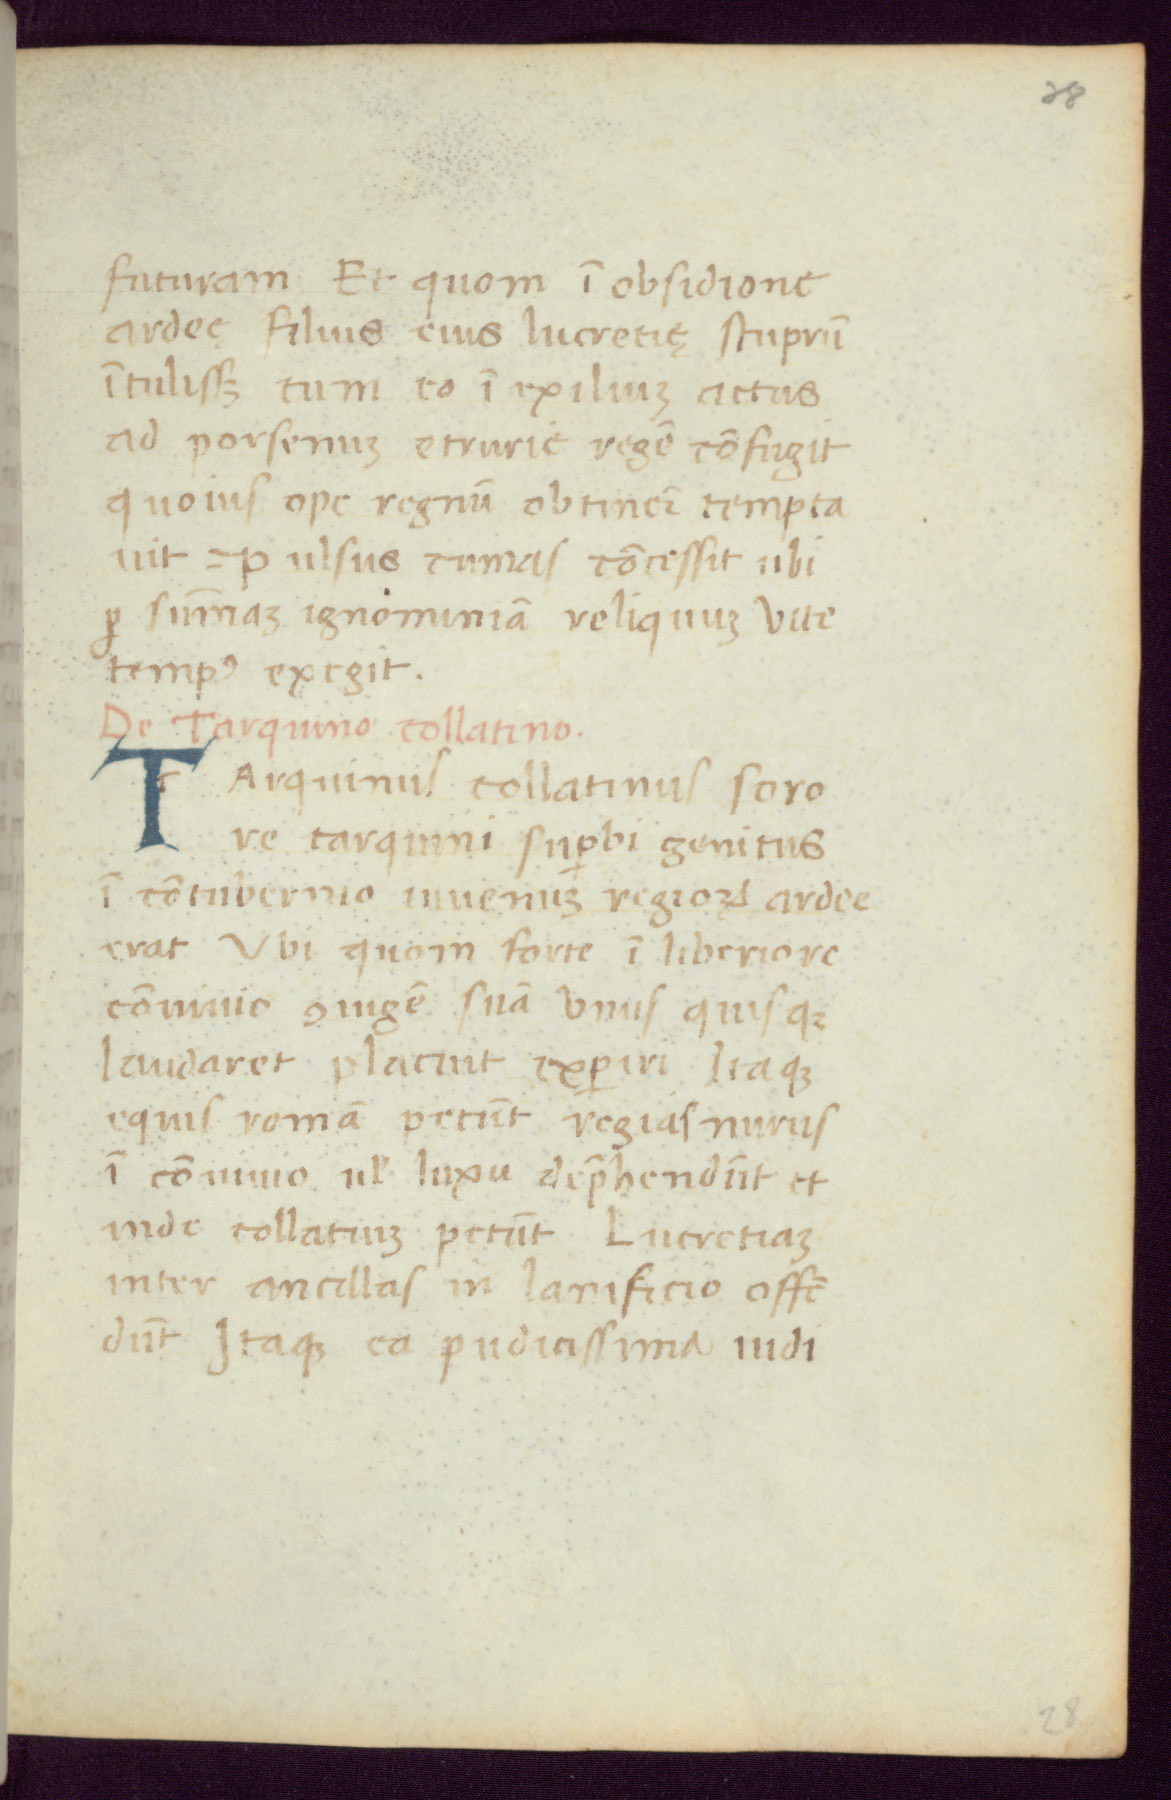 28
futuram Et quom ī obsidione
ardeę filius eius lucretię stuprū
ītulissꝫ cum eo ī exiliuꝫ actus
ad porsenuꝫ etrurie regē cōfugit
quoius ope regnū obtinē tempta
uit = pulsus cumas cōcessit ubi
ꝑ sum̄aꝫ ignominiā reliquuꝫ vite
tempꝰ exegit.
De Tarquino collatino.
TArquinus collatinus soro
re tarquini suꝑbi genitus
ī cōtubernio iuuenuꝫ regioꝝ ardee
erat Vbi quom forte ī liberiore
cōuiuio ꝯiugē suā vnus quisqꝫ
laudaret placuit exꝑiri Itaqꝫ
equis romā petūt regias nurus
ī cōuiuio ul̕ luxu dep̄hendūt et
inde collatiuꝫ petūt Lucretiaꝫ
inter ancillas in lanificio offē
dūt Itaqꝫ ea pudicissima iudi
28